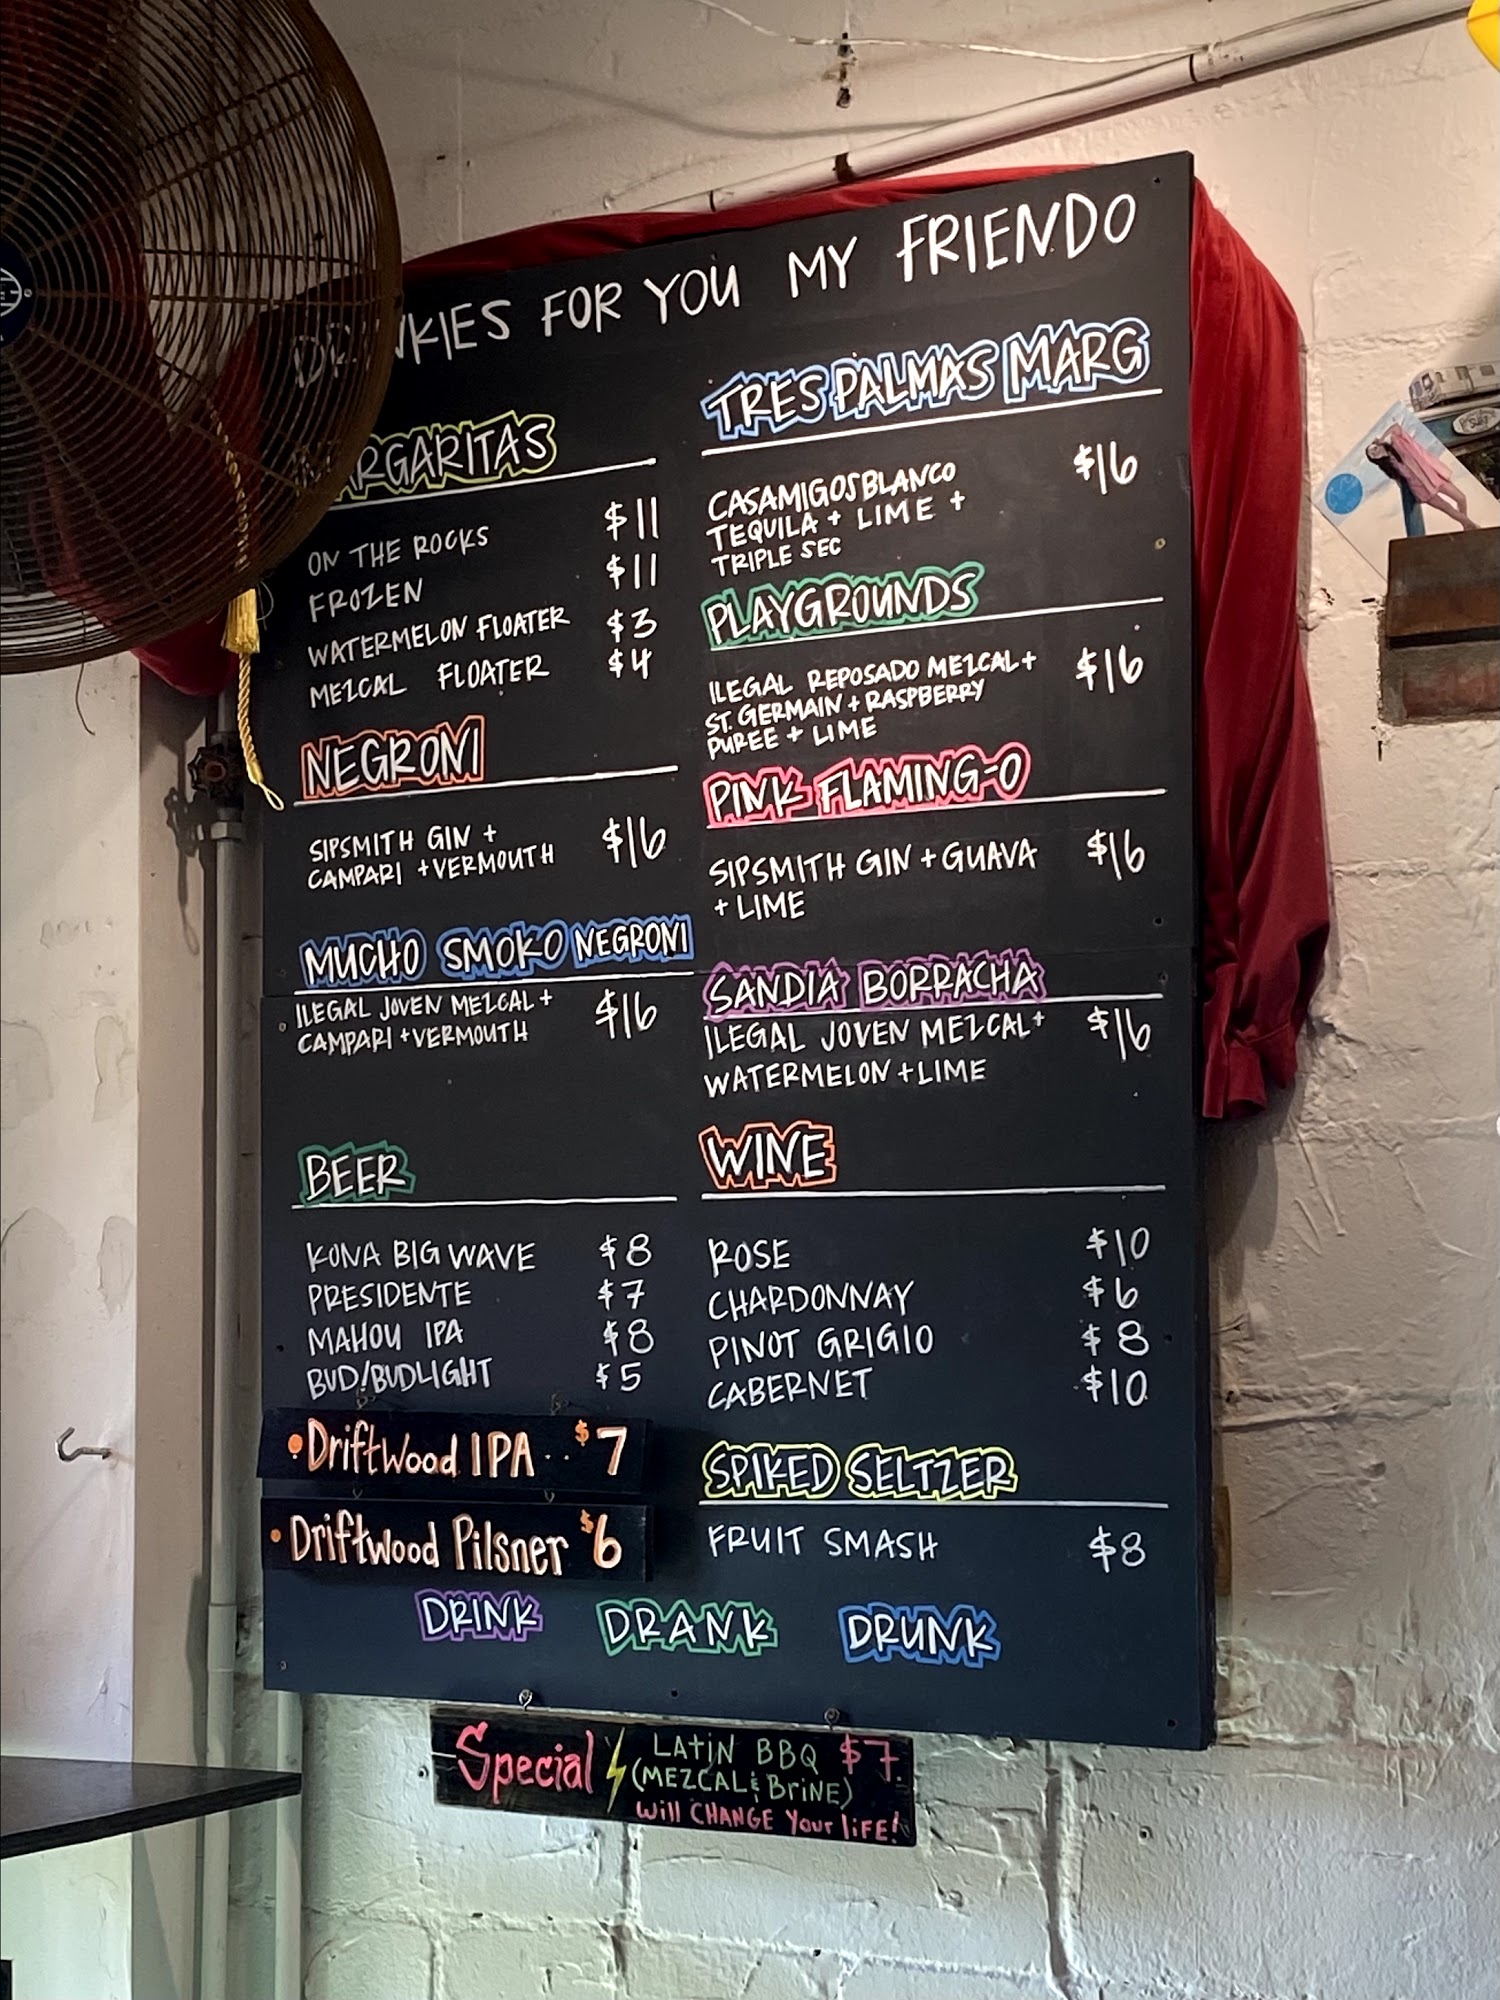 DRINKIES FOR YOU MY FRIENDO
MARGARITAS
ON THE ROCKS $11
FROZEN $11
WATERMELON FLOATER $3
MEZCAL FLOATER $4
NEGRONI
SIPSMITH GIN +
CAMPARI + VERMOUTH $16
MUCHO SMOKO NEGRONI
ILEGAL JOVEN MEZCAL +
CAMPARI + VERMOUTH $16
BEER
KONA BIG WAVE $8
PRESIDENTE $7
MAHOU IPA $8
BUD/BUDLIGHT $5
• Driftwood IPA .. $7
• Driftwood Pilsner $6
TRES PALMAS MARG
CASAMIGOS BLANCO $16
TEQUILA + LIME +
TRIPLE SEC
PLAYGROUNDS
ILEGAL REPOSADO MEZCAL + $16
ST. GERMAIN + RASPBERRY
PUREE + LIME
PINK FLAMING-O
SIPSMITH GIN + GUAVA $16
+ LIME
SANDIA BORRACHA
ILEGAL JOVEN MEZCAL + $16
WATERMELON + LIME
WINE
ROSE $10
CHARDONNAY $6
PINOT GRIGIO $8
CABERNET $10
SPIKED SELTZER
FRUIT SMASH $8
DRINK DRANK DRUNK
Special LATIN BBQ $7.
(MEZCAL & BRINE)
Will CHANGE Your liFE!